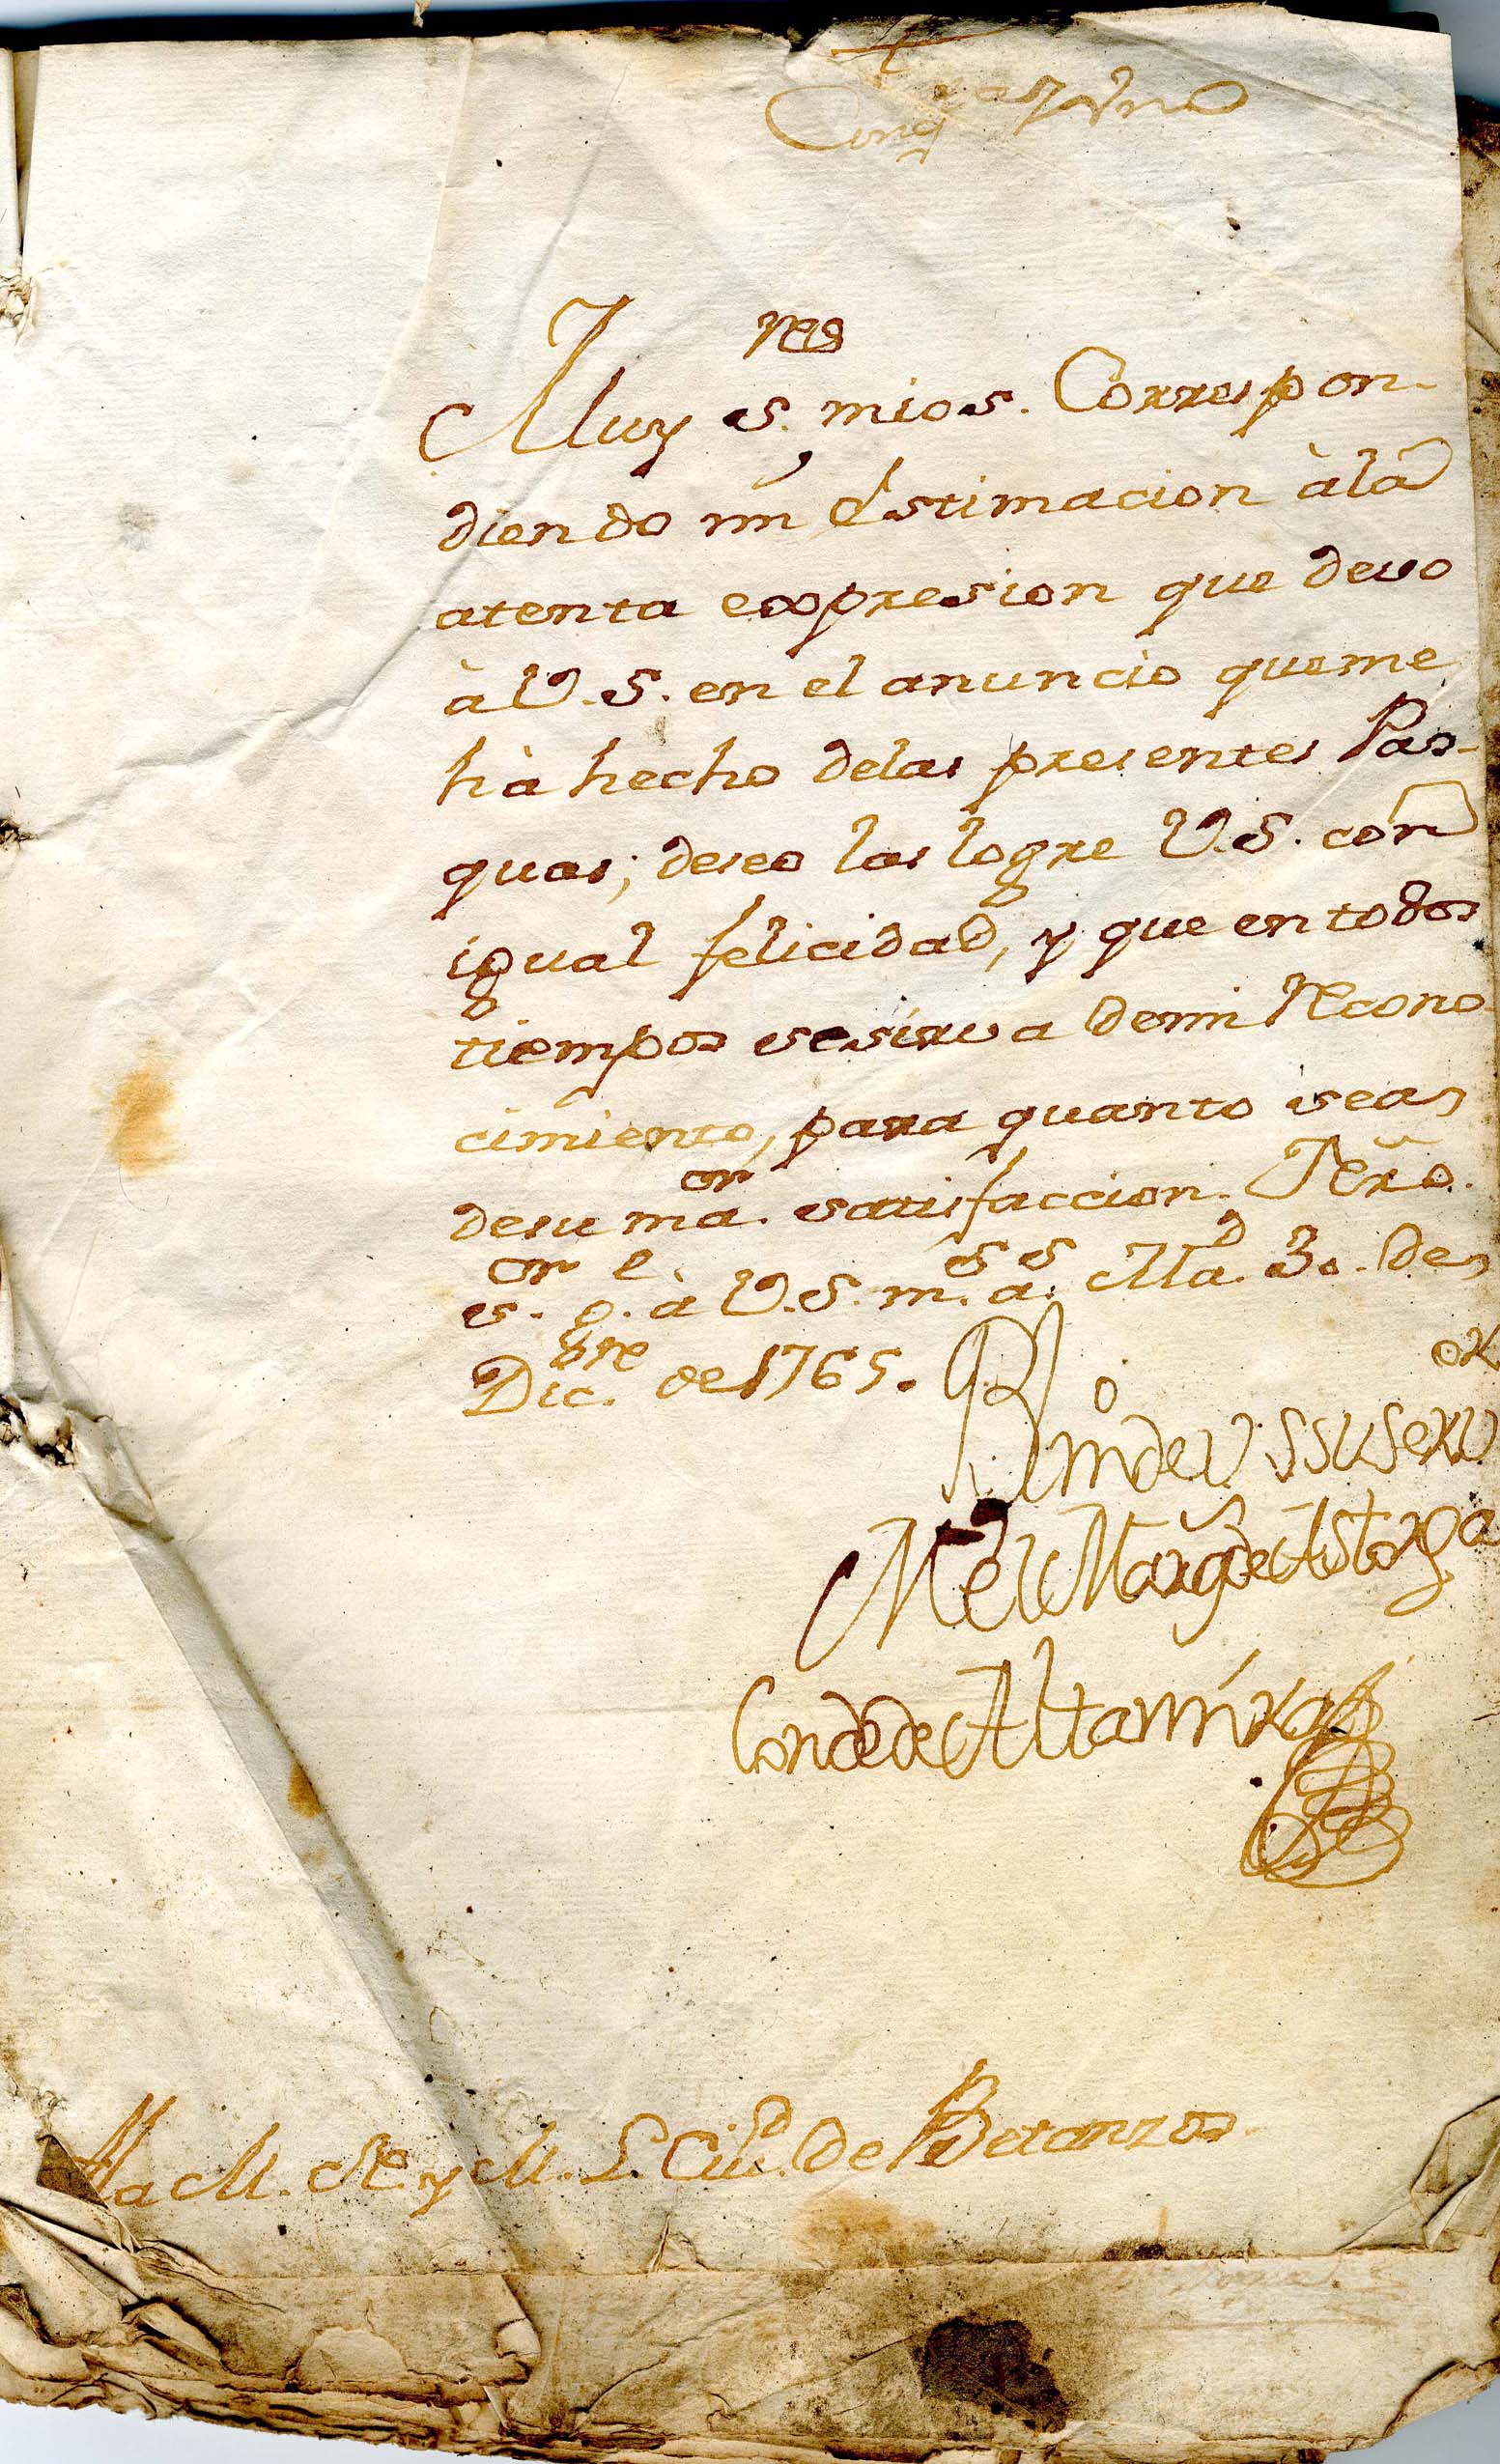 Muy s.res mios. Correspon-
diendo mi estimacion àla
atenta expresion que devo
à V.S. en el anuncio queme
hà hecho delas presentes Pas-
quas; deseo las logre V.S. con
igual felicidad, y que en todos
tiempos se sirva demi Recono-
cimiento, para quanto sea
desu ma.or satisfaccion. Nr̃o.
S.or g.e à V.S. m.s a.s Ma.d 30. de
Dic.bre de 1765.
BlM de V.SS su serv.or
El Marq.s de Astorga
Conde de Altamira
M. N. y M. L. Ciu.d de Betanzos.